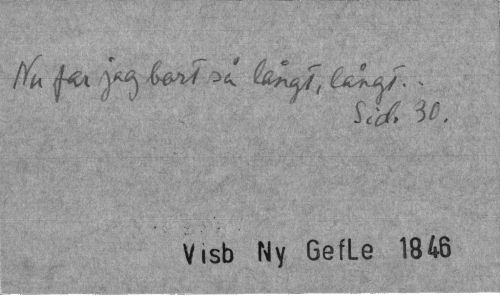 Nu far jag bort så långt, långt..
Sid. 30.
Visb Ny GefLe 1846